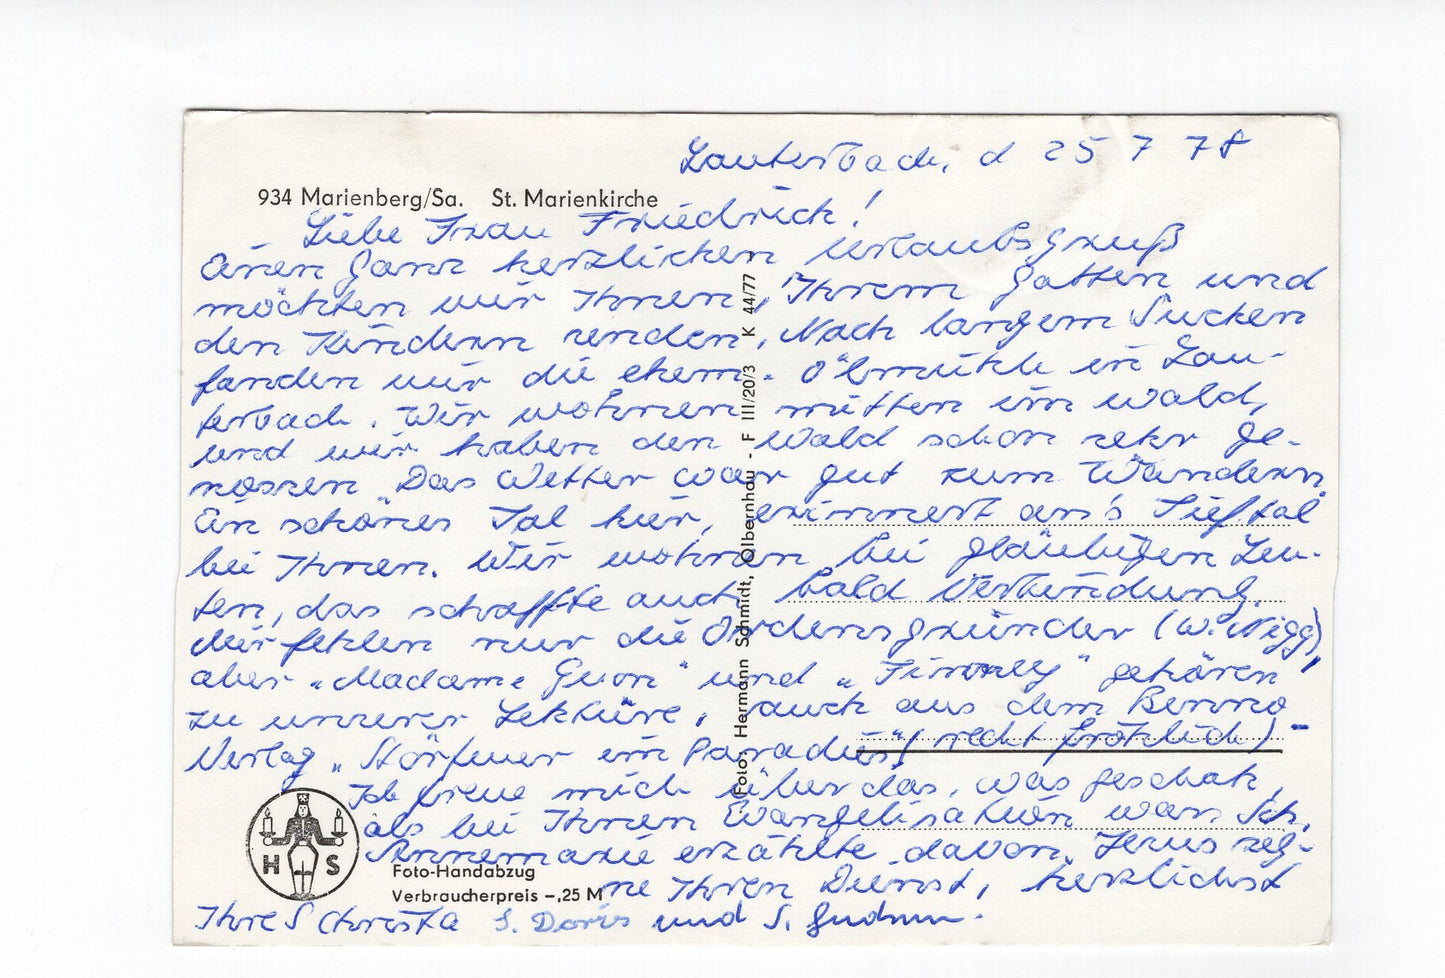 Lauterbach, d 25 7 78
934 Marienberg/Sa. St. Marienkirche
Liebe Frau Friedrich!
Einen ganz herzlichen Urlaubsgruß
möchten wir Ihnen, Ihrem Gatten und
den Kindern senden. Nach langem Suchen
fanden wir die ehem. Ölmühle in Lau-
terbach. Wir wohnen mitten im Wald,
und wir haben den Wald schon sehr ge-
nossen. Das Wetter war gut zum Wandern.
Ein schönes Tal hier, erinnert an's Tieftal
bei Ihnen. Wir wohnen bei gläubigen Leu-
ten, das schaffte auch bald Verbindung.
Mir fehlen nur die Ordensgründer (W. Nigg),
aber „Madame Guon" und „Finney" gehören
zu unserer Lektüre. auch aus dem Benno
Verlag „Störfeuer im Paradies" (recht fröhlich) -
Ich freue mich über das, was geschah,
als bei Ihnen Evangelisation war. Sch.
Annemarie erzählte davon. Jesus seg-
ne Ihren Dienst, herzlichst
Ihre S Christa S. Doris und S. Gudrun.
Foto: Hermann Schmidt, Olbernhau - F III/20/3 K 44/77
H S
Foto-Handabzug
Verbraucherpreis -,25 M